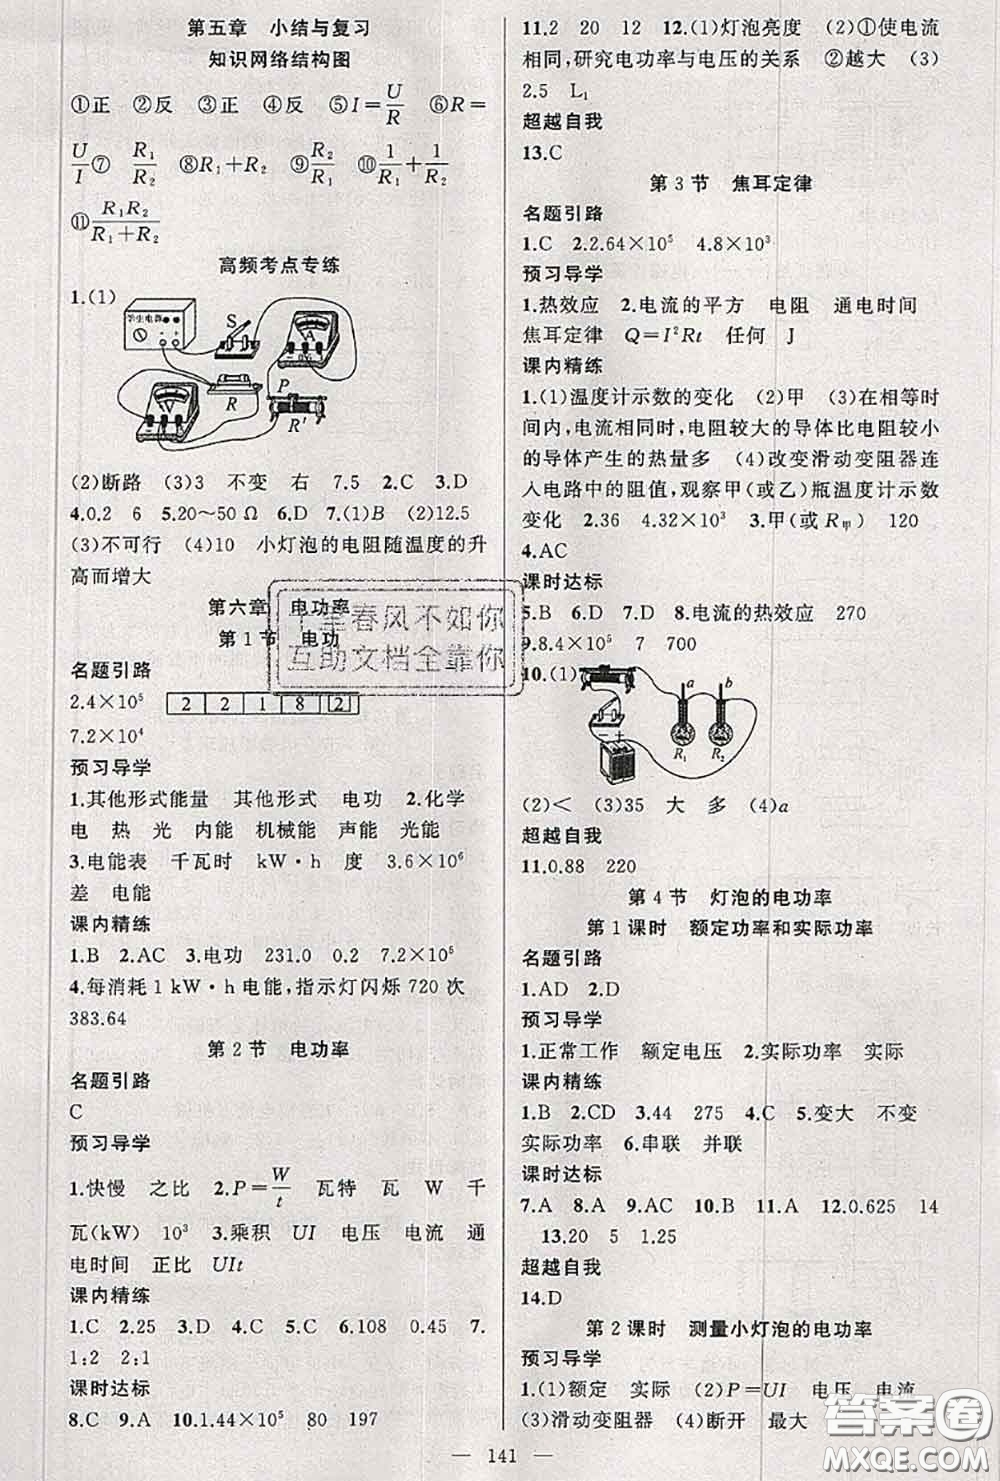 第五章　小结与复习
知识网络结构图
①正　②反　③正　④反　⑤I=U/R　⑥R=
U/I⑦　R₁/R₂　⑧R₁+R₂　⑨R₂/R₁　⑩1/R₁+1/R₂
⑪R₁R₂/(R₁+R₂)
高频考点专练
1.(1)
学生电源
S
A
V
R
P
R′
(2)断路　(3)3　不变　右　7.5　2.C　3.D
4.0.2　6　5.20～50 Ω　6.D　7.(1)B　(2)12.5
(3)不可行　(4)10　小灯泡的电阻随温度的升
高而增大
第六章　电功率
第1节　电功
名题引路
2.4×10⁵　2 2 1 8 2
7.2×10⁴
预习导学
1.其他形式能量　其他形式　电功　2.化学
电　热　光　内能　机械能　声能　光能
3.电能表　千瓦时　kW·h　度　3.6×10⁶
差　电能
课内精练
1.B　2.AC　3.电功　231.0　0.2　7.2×10⁵
4.每消耗1 kW·h电能,指示灯闪烁720次
383.64
第2节　电功率
名题引路
C
预习导学
1.快慢　之比　2.P=W/t　瓦特　瓦　W　千
瓦(kW)　10³　3.乘积　UI　电压　电流　通
电时间　正比　UIt
课内精练
1.C　2.25　3.D　4.C　5.C　6.108　0.45　7.
1:2　2:1
课时达标
8.C　9.A　10.1.44×10⁵　80　197
11.2　20　12　12.(1)灯泡亮度　(2)①使电流
相同,研究电功率与电压的关系　②越大　(3)
2.5　L₁
超越自我
13.C
第3节　焦耳定律
名题引路
1.C　2.2.64×10⁵　4.8×10³
预习导学
1.热效应　2.电流的平方　电阻　通电时间
焦耳定律　Q=I²Rt　任何　J
课内精练
1.(1)温度计示数的变化　(2)甲　(3)在相等时
间内,电流相同时,电阻较大的导体比电阻较小
的导体产生的热量多　(4)改变滑动变阻器连
入电路中的阻值,观察甲(或乙)瓶温度计示数
变化　2.36　4.32×10³　3.甲(或R甲)　120
4.AC
课时达标
5.B　6.D　7.D　8.电流的热效应　270
9.8.4×10⁵　7　700
10.(1)
a
b
R₁
R₂
(2)<　(3)35　大　多　(4)a
超越自我
11.0.88　220
第4节　灯泡的电功率
第1课时　额定功率和实际功率
名题引路
1.AD　2.D
预习导学
1.正常工作　额定电压　2.实际功率　实际
课内精练
1.B　2.CD　3.44　275　4.C　5.变大　不变
实际功率　6.串联　并联
课时达标
7.A　8.A　9.AC　10.B　11.A　12.0.625　14
13.20　5　1.25
超越自我
14.D
第2课时　测量小灯泡的电功率
预习导学
1.(1)额定　实际　(2)P=UI　电压　电流
(3)滑动变阻器　(4)断开　最大
— 141 —
千里春风不如你
互助文档全靠你
答案圈
MXQE.COM